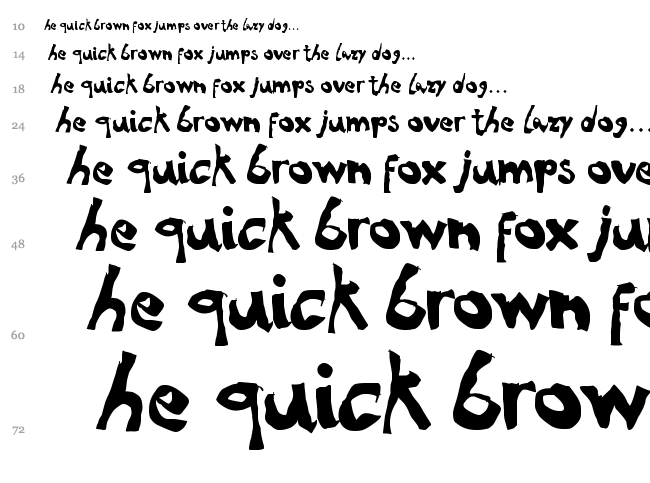 10 he quick brown fox jumps over the lazy dog...
14 he quick brown fox jumps over the lazy dog...
18 he quick brown fox jumps over the lazy dog...
24 he quick brown fox jumps over the lazy dog...
36 he quick brown fox jumps ove
48 he quick brown fox ju
60 he quick brown fo
72 he quick brow